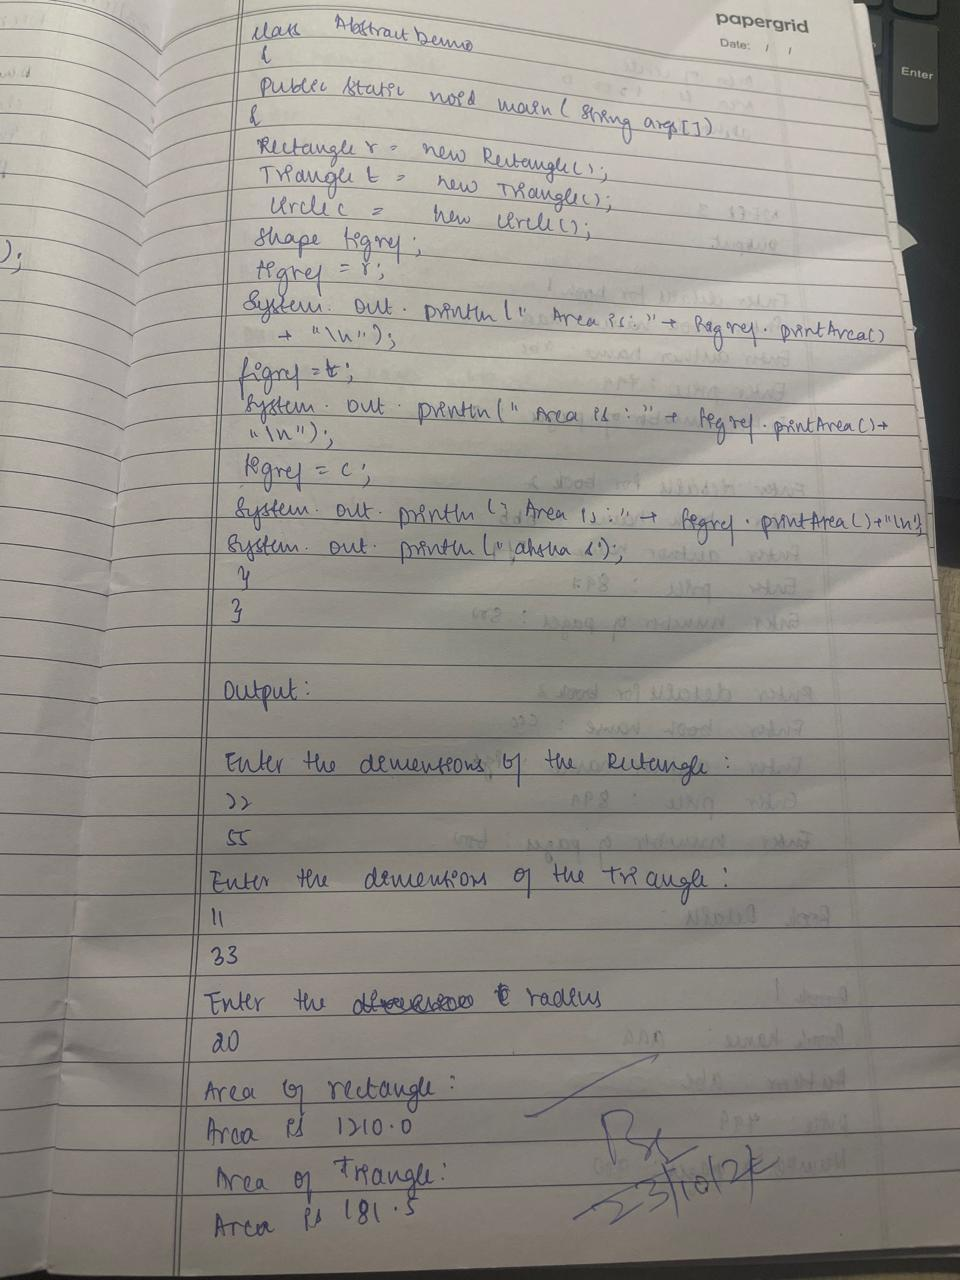 papergrid
Date: / /
Enter
class AbstractDemo
{
Public static void main( string args[])
{
Rectangle r = new Rectangle();
Triangle t = new Triangle();
Circle c = new Circle();
Shape figref;
figref = r;
System. out. println(" Area is:"+ figref. printArea()
+ "\n");
figref = t;
System. out. println(" Area is :"+ figref. printArea()+
"\n");
figref = c;
System. out. println (" Area is:"+ figref. printArea()+"\n");
System. out. println ("
}
}
);
Output:
Enter the dimentions of the Rectangle :
22
55
Enter the dimentions of the Triangle :
11
33
Enter the radius
20
Area of rectangle :
Area is 1210.0
Area of Triangle:
Area is 181.5
23/10/2